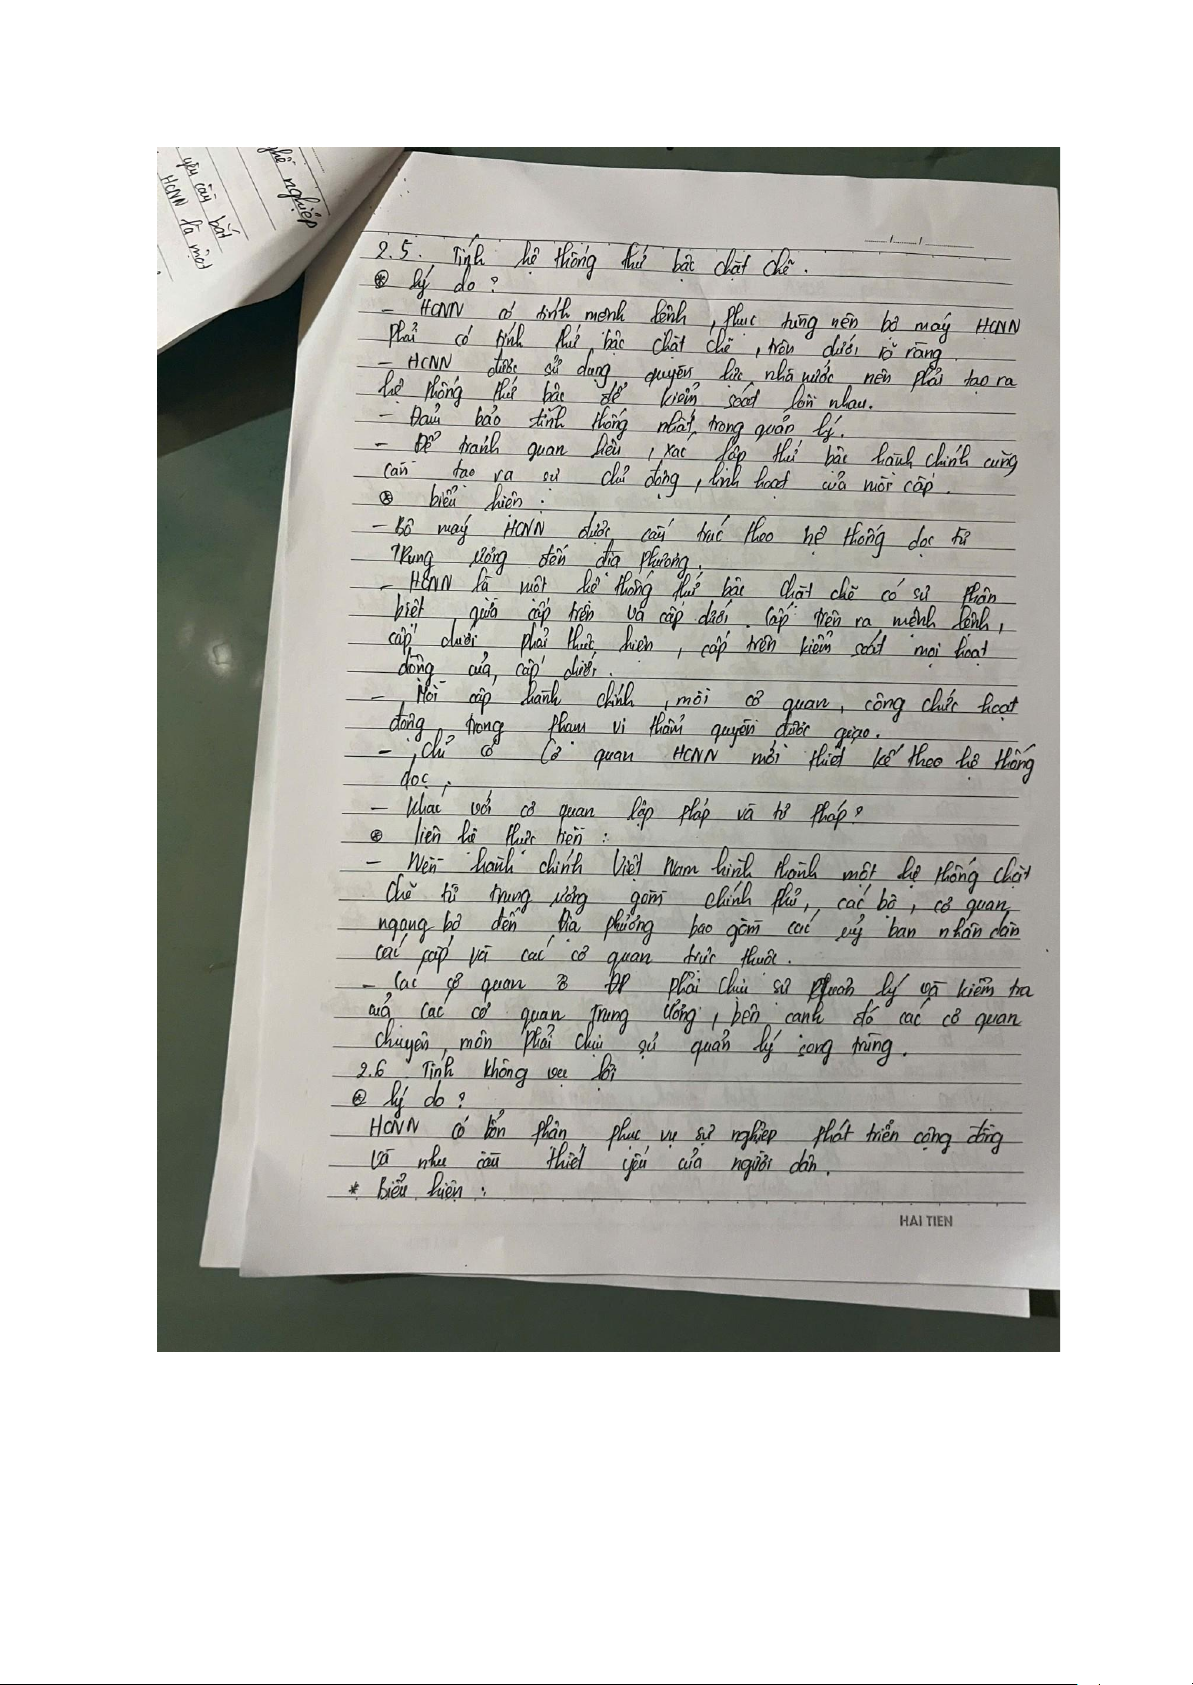 ghề nghiệp
yêu cầu bắt
HCNN là một
2.5. Tính hệ thống thứ bậc chặt chẽ.
⊛ lý do?
- HCNN có tính mệnh lệnh, phục tùng nên bộ máy HCNN
phải có tính thứ bậc chặt chẽ, trên dưới rõ ràng.
- HCNN được sử dụng quyền lực nhà nước nên phải tạo ra
hệ thống thứ bậc để kiểm soát lẫn nhau.
- Đảm bảo tính thống nhất trong quản lý.
- Để tránh quan liêu, xác lập thứ bậc hành chính cũng
cần tạo ra sự chủ động, linh hoạt của mỗi cấp.
⊛ biểu hiện:
- Bộ máy HCNN được cấu trúc theo hệ thống dọc từ
Trung ương đến địa phương.
- HCNN là một hệ thống thứ bậc chặt chẽ có sự phân
biệt giữa cấp trên và cấp dưới. Cấp trên ra mệnh lệnh,
cấp dưới phải thực hiện, cấp trên kiểm soát mọi hoạt
động của cấp dưới.
- Mỗi cấp hành chính, mỗi cơ quan, công chức hoạt
động trong phạm vi thẩm quyền được giao.
- Chỉ có Cơ quan HCNN mới thiết kế theo hệ thống
dọc,
- Khác với cơ quan lập pháp và tư pháp?
⊛ liên hệ thực tiễn:
- Nền hành chính Việt Nam hình thành một hệ thống chặt
chẽ từ trung ương gồm chính phủ, các bộ, cơ quan
ngang bộ đến địa phương bao gồm các uỷ ban nhân dân
các cấp và các cơ quan trực thuộc.
- Các cơ quan ở ĐP phải chịu sự quản lý và kiểm tra
của các cơ quan Trung ương, bên cạnh đó các cơ quan
chuyên môn phải chịu sự quản lý song trùng.
2.6 Tính không vụ lợi
⊛ lý do?
HCNN có bổn phận phục vụ sự nghiệp phát triển cộng đồng
và nhu cầu thiết yếu của người dân.
* Biểu hiện:
HAI TIEN